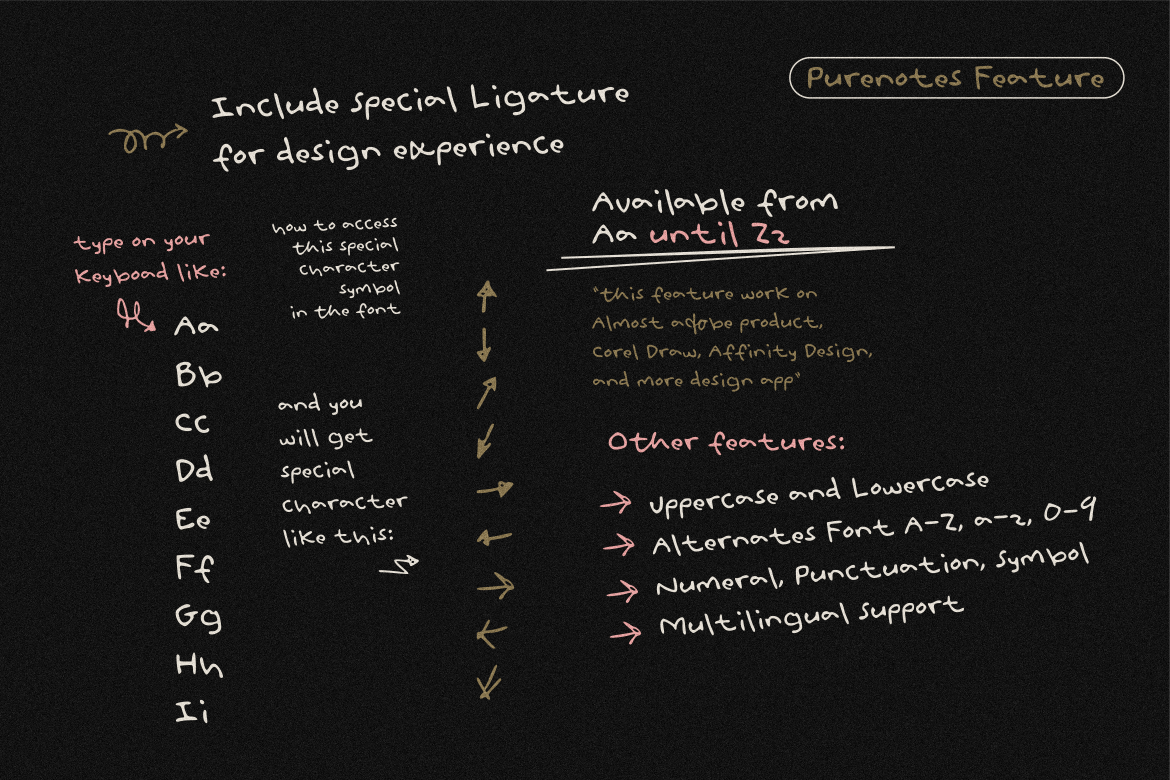 Purenotes Feature
Include special Ligature
for design experience
type on your
Keyboad like:
Aa
Bb
Cc
Dd
Ee
Ff
Gg
Hh
Ii
how to access
this special
character
symbol
in the font
and you
will get
special
character
like this:
Available from
Aa until Zz
"this feature work on
Almost adobe product,
Corel Draw, Affinity Design,
and more design app"
Other features:
Uppercase and Lowercase
Alternates Font A-Z, a-z, 0-9
Numeral, Punctuation, Symbol
Multilingual Support